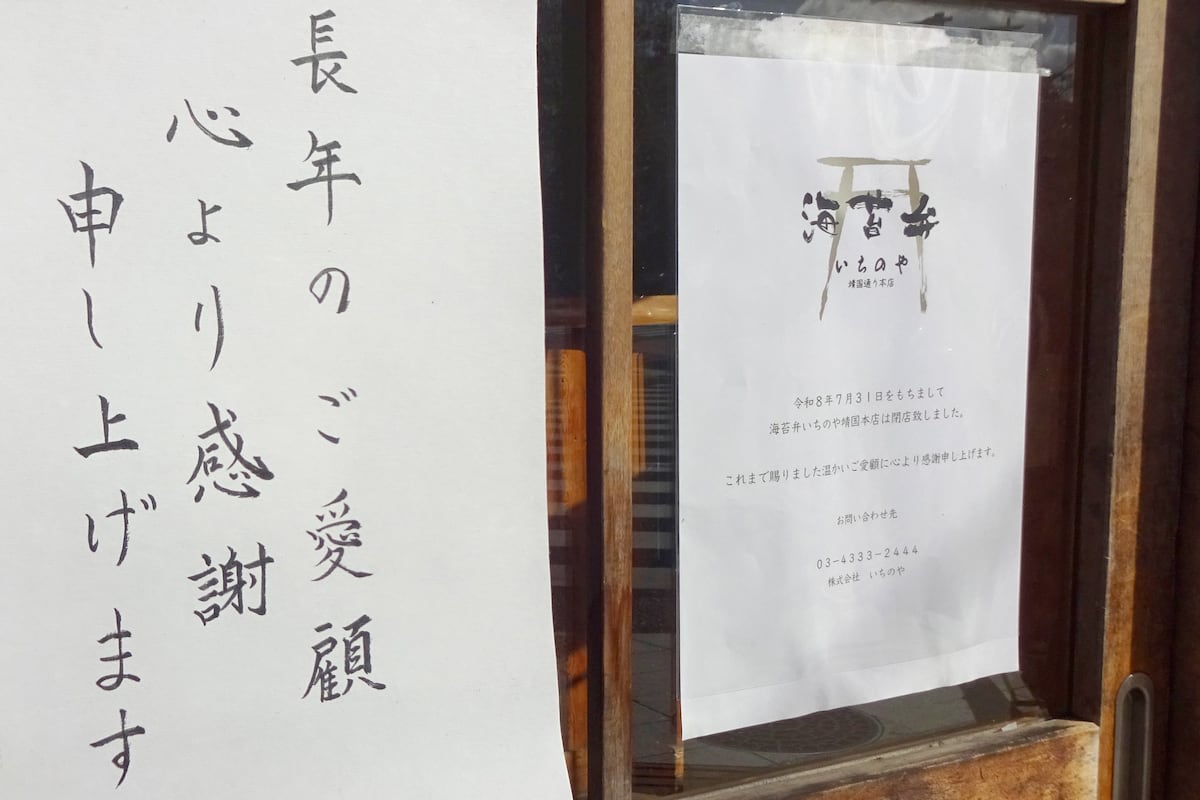 長年のご愛顧
心より感謝
申し上げます
海苔弁
いちのや
靖国通り本店
令和8年7月31日をもちまして
海苔弁いちのや靖国本店は閉店致しました。
これまで賜りました温かいご愛顧に心より感謝申し上げます。
お問い合わせ先
03-4333-2444
株式会社 いちのや